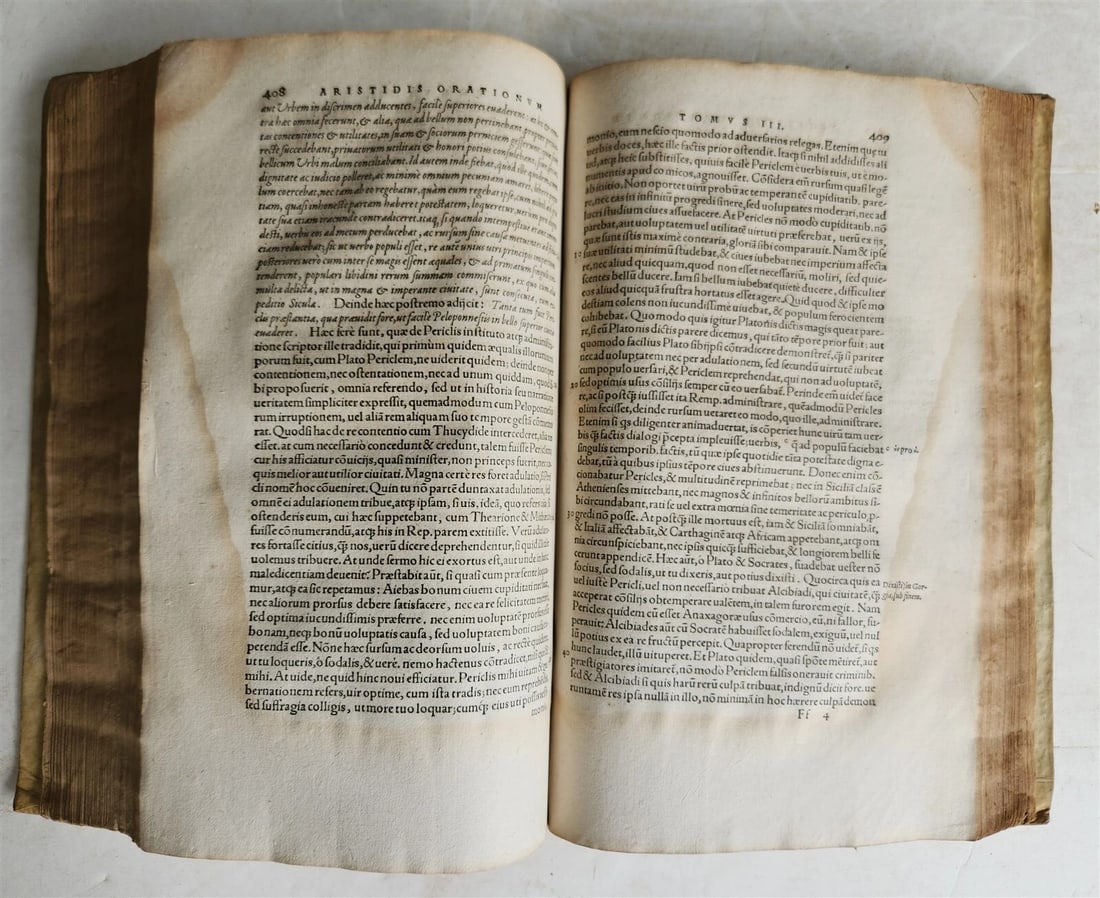 408 ARISTIDIS ORATIONVM
aut Urbem in discrimen adducentes, facile superiores evaderent:
tra hæc omnia fecerunt, & alia, quæ ad bellum non pertinebant
tas contentiones & utilitates, in suam & sociorum perniciem
recte succedebant, privatorum utilitati & honori potius
bellicum Urbi malum conciliabant. Id autem inde fiebat, quod ille
dignitate ac iudicio polleret, ac minimè omnium pecuniam amaret,
lum coercebat, nec tam ab eo regebatur, quàm eum regebat ipse,
tiam, quasi inhoneste partam haberet potestatem, loqueretur,
tate sua etiam iracunde contradiceret. itaq; si quando intempestive
desti, verbis eos ad metum perducebat, ac rursum sine causa
ciam reducebat: sic ut verbo populi esset, re autē unius viri principis
posteriores verò cum inter se magis essent æquales, & ad primatum
tenderent, populari libidini rerum summam commiserunt, ex quo
multa delicta, ut in magna & imperante civitate, sunt consecuta, tum
peditio Sicula. Deinde hæc postremo adijcit: Tanta tum fuit
cis præstantia, qua prævidit fore, ut facile Peloponnesijs in bello superior
evaderet. Hæc ferè sunt, quæ de Periclis instituto atcp
tione scriptor ille tradidit, qui primùm quidem æqualis illorum
porum fuit, cum Plato Periclem, ne viderit quidem; deinde non
contentionem, nec ostentationem, nec ad unum quiddam,
bi proposuerit, omnia referendo, sed ut in historia seu narratione
ueritatem simpliciter expressit, quemadmodum cum Peloponnesio
rum irruptionem, uel aliā rem aliquam suo tempore gestā
rat. Quodsi hac de re contentio cum Thucydide intercederet,
esset. at cum necessariò concedunt & credunt, talem fuisse
cur his afficiatur cōuicijs, quasi minister, non princeps fuerit,
quis melior aut utilior ciuitati. Magna certè res foret adulatio, si
cli nomē hoc cōueniret. Quin tu nō partē duntaxat adulationis,
omnē ei adulationem tribue, atcp ipsam, si uis, ideā, quo
ostenderis eum, cui hæc suppetebant, cum Thearione &
fuisse cōnumerandū, atcp his in Rep. parem extitisse. Verū
res fortasse citius, q̃ nos, uerū dicere deprehendentur, si quid
uolemus tribuere. At unde sermo hic exortus est, aut unde
maledicentiam deuenit? Præstabit aūt, si quasi cum præsente
mur, atcp ea sic repetamus: Aiebas bonum ciuem cupiditati
nec aliorum prorsus debere satisfacere, nec ea re felicitatem
sed optima iucundissimis præferre. nec enim uoluptatē
bonam, necp bonū uoluptatis causa, sed uoluptatem boni causa
petendā esse. Nōne hæc sursum ac deorsum uoluis, ac recte quidem,
ut tu loqueris, ò sodalis, & uerè. nemo hactenus cōtradicet,
mihi. At uide, ne quid hinc noui efficiatur. Periclis mihi uitam &
bernationem refers, uir optime, cum ista tradis; nec eum
sed suffragia colligis, ut more tuo loquar; cumcp eius uti
moni-
TOMVS III. 409
monio, eum nescio quomodo ad aduersarios relegas. Etenim quę tu
uerbis doces, hæc ille factis prior ostendit. Itacp si nihil addidisses ali
ud, atcp heic substitisses, quiuis facile Periclem è uerbis tuis, ut è mo-
numentis apud comicos, agnouisset. Cōsidera em̄ rursum quasi legē
ab initio. Non oportet uirū probū ac temperantē cupiditatib. pare-
re, nec eas in infinitū progredi sinere, sed uoluptates moderari, nec ad
lucri studium ciues assuefacere. At Pericles nō modo cupiditatib. nō
parebat, aut uoluptatem uel utilitatē uirtuti præferebat, uerū ex ijs,
quæ sunt istis maximè contraria, gloriā sibi comparauit. Nam & ipse
10 suæ utilitati minimū studebat, & ciues iubebat nec imperium affecta
re, nec aliud quicquam, quod non esset necessariū, moliri, sed quie-
scentes bellū ducere. Iam si bellum iubebat quietè ducere, difficulter
eos aliud quicquā frustra hortatus esset agere. Quid quod & ipse mo
destiam colens non iucundissimè uiuebat, & populum ferocientem
cohibebat. Quo modo quis igitur Platonis dictis magis queat pare-
re, si eū Platonis dictis parere dicemus, qui tāto tēpore prior fuit: aut
quomodo facilius Plato sibijpsi cōtradicere demonstret, q̃ si pariter
nec ad uoluptatem nec per adulationem, sed secundū uirtutē iubeat
cum populo uersari, & Periclem reprehendat, qui non ad uoluptatē,
20 sed optimis usus cōsilijs semper cū eo uersabat. Perinde em̄ uidet face
re, ac si postcp̃ iussisset ita Remp. administrare, quēadmodū Pericles
olim fecisset, deinde rursum uetaret eo modo, quo ille, administrare.
Etenim si qs diligenter animaduertat, is cōperiet hunc uirū tam uer-
bis q̃ factis dialogi p̄cepta impleuisse: uerbis, c q̃ ad populū faciebat
singulis temporib. factis, tū quæ ipse quotidie tāta potestate digna e-
debat, tū à quibus ipsius tēpore ciues abstinuerunt. Donec enim cō-
cionabatur Pericles, & multitudinē reprimebat; nec in Siciliā classē
Athenienses mittebant, nec magnos & infinitos bellorū ambitus si-
bi circundabant, rati se uel extra mœnia sine temeritate ac periculo, p-
30 gredi nō posse. At postcp̃ ille mortuus est, iam & Siciliā somniabāt,
& Italiā affectabāt, & Carthaginē atcp Africam appetebant, atcp om
nia circunspiciebant, nec ipsis quicq̃ sufficiebat, & longiorem belli fe
cerunt appendicē. Hæc aūt, ò Plato & Socrates, suadebat uester nō
socius, sed sodalis, ut tu dixeris, aut potius dixisti. Quocirca quis ea
uel iuste Pericli, uel non necessariò tribuat Alcibiadi, qui ciuitatē, q̃
acceperat cōsilijs obtemperare ualētem, in talem furorem egit. Nam
Pericles quidem cū esset Anaxagoræ usus cōmercio, eū, ni fallor, su-
perauit: Alcibiades aūt cū Socratē habuisset sodalem, exiguū, uel nul
lū potius ex ea re fructū percepit. Quapropter ferendū nō uidet, si qs
40 hunc laudet, illū uituperet. Et Plato quidem, quasi spōte mētiret, aut
præstigiatores imitaret, nō modò Periclem falsis onerauit criminib.
sed & Alcibiadi si quis harū rerū culpā tribuat, indignū dicit fore. ue
runtamē res ipsa nullā in illo, nō minimā in hoc hærere culpā demon
Ff 4
c is pro l.
Dixisti in Gor-
gia, sub finem.